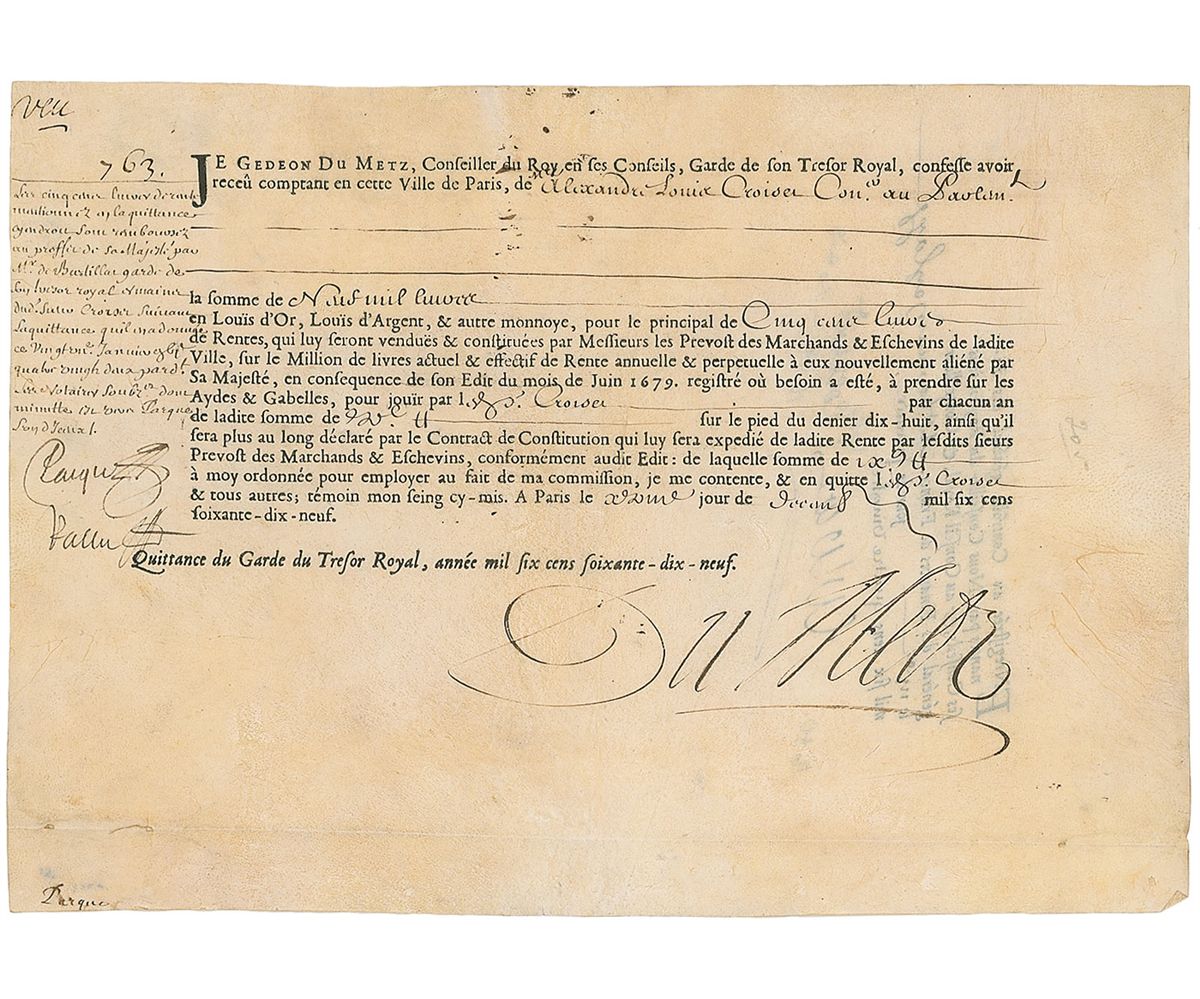 veu
763.
JE GEDEON DU METZ, Conſeiller du Roy en ſes Conſeils, Garde de ſon Treſor Royal, confeſſe avoir
receû comptant en cette Ville de Paris, de Alexandre Louis Croiset Con.er au Parlem.t
la ſomme de Neuf mil livres
en Louïs d'Or, Louïs d'Argent, & autre monnoye, pour le principal de Cinq cens livres
de Rentes, qui luy ſeront venduës & conſtituées par Meſſieurs les Prevoſt des Marchands & Eſchevins de ladite
Ville, ſur le Million de livres actuel & effectif de Rente annuelle & perpetuelle à eux nouvellement aliéné par
Sa Majeſté, en conſequence de ſon Edit du mois de Juin 1679. regiſtré où beſoin a eſté, à prendre ſur les
Aydes & Gabelles, pour joüir par l. Croiset par chacun an
de ladite ſomme de ſur le pied du denier dix-huit, ainſi qu'il
ſera plus au long déclaré par le Contract de Conſtitution qui luy ſera expedié de ladite Rente par leſdits ſieurs
Prevoſt des Marchands & Eſchevins, conformément audit Edit: de laquelle ſomme de
à moy ordonnée pour employer au fait de ma commiſſion, je me contente, & en quitte l. Croiset
& tous autres; témoin mon ſeing cy-mis. A Paris le jour de decemb mil ſix cens
ſoixante-dix-neuf.
Quittance du Garde du Treſor Royal, année mil ſix cens ſoixante-dix-neuf.
Les cinq cens livres de rente
mentionnez en la quittance
au proffit de sa Majesté par
Mr. de Bartillat garde de
son tresor royal
Croiset suivant
la quittance qu'il en a donnée
ce Vingt Janvier
quatre vingt deux pard.t
les Notaires soubz.ez dont
minutte est vers Parque
l'un d'iceux.
Parque
Pallu
Du Metz
Parque